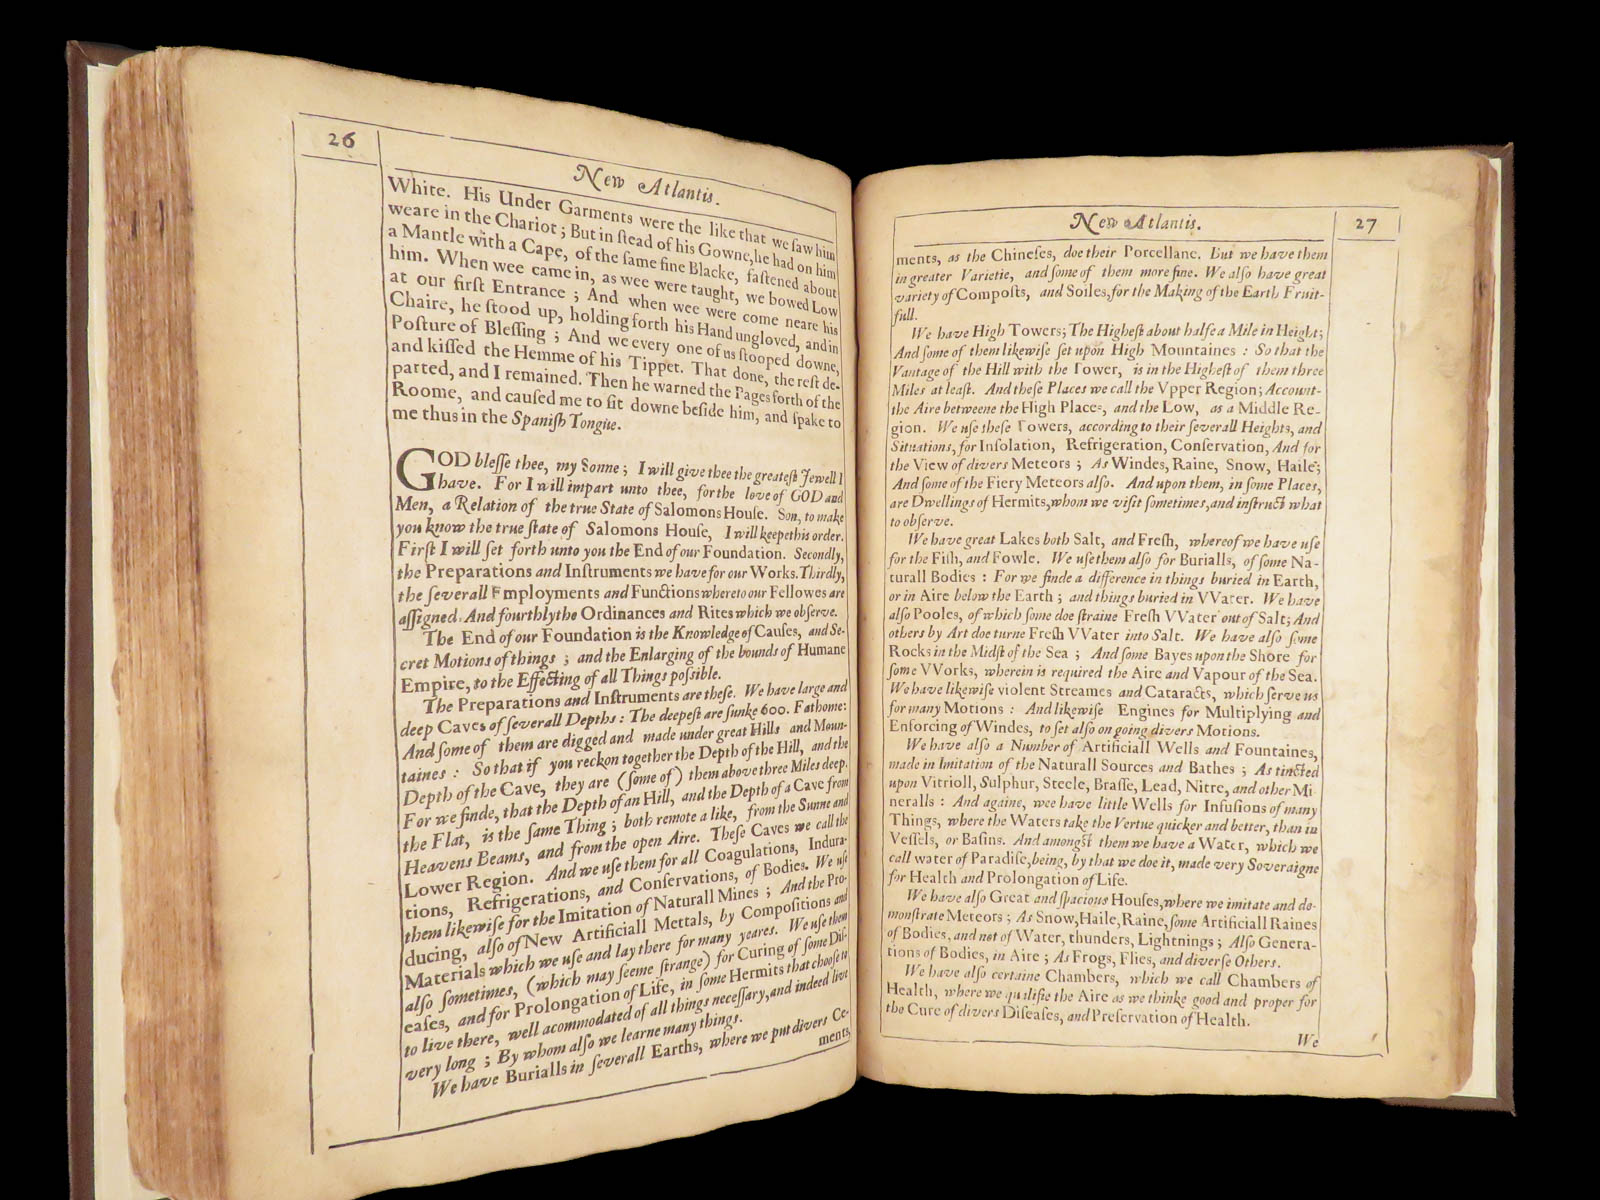 26
New Atlantis.
White. His Under Garments were the like that we ſaw him
weare in the Chariot; But in ſtead of his Gowne, he had on him
a Mantle with a Cape, of the ſame fine Blacke, faſtened about
him. When wee came in, as wee were taught, we bowed Low
at our firſt Entrance; And when wee were come neare his
Chaire, he ſtood up, holding forth his Hand ungloved, and in
Poſture of Bleſſing; And we every one of us ſtooped downe,
and kiſſed the Hemme of his Tippet. That done, the reſt de-
parted, and I remained. Then he warned the Pages forth of the
Roome, and cauſed me to ſit downe beſide him, and ſpake to
me thus in the Spaniſh Tongue.
GOD bleſſe thee, my Sonne; I will give thee the greateſt Jewell I
have. For I will impart unto thee, for the love of GOD and
Men, a Relation of the true State of Salomons Houſe. Son, to make
you know the true ſtate of Salomons Houſe, I will keepe this order.
Firſt I will ſet forth unto you the End of our Foundation. Secondly,
the Preparations and Inſtruments we have for our Works. Thirdly,
the ſeverall Employments and Functions whereto our Fellowes are
aſſigned. And fourthly the Ordinances and Rites which we obſerve.
The End of our Foundation is the Knowledge of Cauſes, and Se-
cret Motions of things; and the Enlarging of the bounds of Humane
Empire, to the Effecting of all Things poſsible.
The Preparations and Inſtruments are theſe. We have large and
deep Caves of ſeverall Depths: The deepeſt are ſunke 600. Fathome:
And ſome of them are digged and made under great Hills and Moun-
taines: So that if you reckon together the Depth of the Hill, and the
Depth of the Cave, they are (ſome of) them above three Miles deep.
For we finde, that the Depth of an Hill, and the Depth of a Cave from
the Flat, is the ſame Thing; both remote a like, from the Sunne and
Heavens Beams, and from the open Aire. Theſe Caves we call the
Lower Region. And we uſe them for all Coagulations, Indura-
tions, Refrigerations, and Conſervations, of Bodies. We uſe
them likewiſe for the Imitation of Naturall Mines; And the Pro-
ducing, alſo of New Artificiall Mettals, by Compoſitions and
Materials which we uſe and lay there for many yeares. We uſe them
alſo ſometimes, (which may ſeeme ſtrange) for Curing of ſome Diſ-
eaſes, and for Prolongation of Life, in ſome Hermits that chooſe to
to live there, well acommodated of all things neceſſary, and indeed live
very long; By whom alſo we learne many things.
We have Burialls in ſeverall Earths, where we put divers Ce-
ments,
New Atlantis.
27
ments, as the Chineſes, doe their Porcellane. But we have them
in greater Varietie, and ſome of them more fine. We alſo have great
variety of Compoſts, and Soiles, for the Making of the Earth Fruit-
full.
We have High Towers; The Higheſt about halfe a Mile in Height;
And ſome of them likewiſe ſet upon High Mountaines: So that the
Vantage of the Hill with the Tower, is in the Higheſt of them three
Miles at leaſt. And theſe Places we call the Vpper Region; Account-
the Aire betweene the High Places, and the Low, as a Middle Re-
gion. We uſe theſe Towers, according to their ſeverall Heights, and
Situations, for Inſolation, Refrigeration, Conſervation, And for
the View of divers Meteors; As Windes, Raine, Snow, Haile;
And ſome of the Fiery Meteors alſo. And upon them, in ſome Places,
are Dwellings of Hermits, whom we viſit ſometimes, and inſtruct what
to obſerve.
We have great Lakes both Salt, and Freſh, whereof we have uſe
for the Fiſh, and Fowle. We uſe them alſo for Burialls, of ſome Na-
turall Bodies: For we finde a difference in things buried in Earth,
or in Aire below the Earth; and things buried in VVater. We have
alſo Pooles, of which ſome doe ſtraine Freſh VVater out of Salt; And
others by Art doe turne Freſh VVater into Salt. We have alſo ſome
Rocks in the Midſt of the Sea; And ſome Bayes upon the Shore for
ſome VVorks, wherein is required the Aire and Vapour of the Sea.
We have likewiſe violent Streames and Cataracts, which ſerve us
for many Motions: And likewiſe Engines for Multiplying and
Enforcing of Windes, to ſet alſo on going divers Motions.
We have alſo a Number of Artificiall Wells and Fountaines,
made in Imitation of the Naturall Sources and Bathes; As tincted
upon Vitrioll, Sulphur, Steele, Braſſe, Lead, Nitre, and other Mi
neralls: And againe, wee have little Wells for Infuſions of many
Things, where the Waters take the Vertue quicker and better, than in
Veſſels, or Baſins. And amongſt them we have a Water, which we
call water of Paradiſe, being, by that we doe it, made very Soveraigne
for Health and Prolongation of Life.
We have alſo Great and ſpacious Houſes, where we imitate and de-
monſtrate Meteors; As Snow, Haile, Raine, ſome Artificiall Raines
of Bodies, and not of Water, thunders, Lightnings; Alſo Genera-
tions of Bodies, in Aire; As Frogs, Flies, and diverſe Others.
We have alſo certaine Chambers, which we call Chambers of
Health, where we qualifie the Aire as we thinke good and proper for
the Cure of divers Diſeaſes, and Preſervation of Health.
We